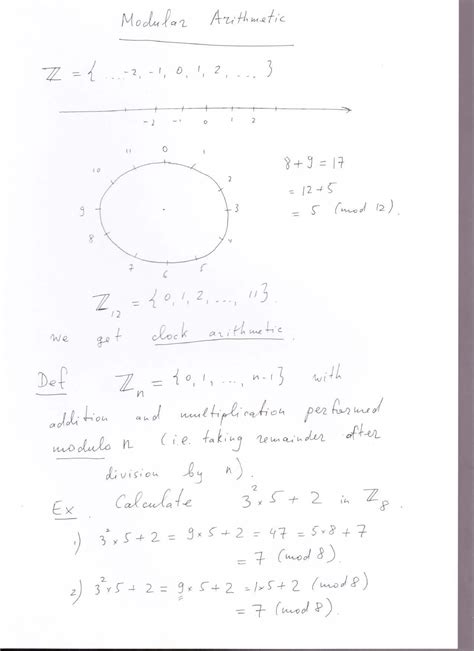 Modular Arithmetic
ℤ = { ... -2, -1, 0, 1, 2, ... }
-2 -1 0 1 2
11 0 1
10 2
9 3
8 4
7 6 5
8+9 = 17
= 12+5
= 5 (mod 12).
ℤ₁₂ = {0, 1, 2, ..., 11}.
we get clock arithmetic.
Def ℤₙ = {0, 1, ..., n-1} with
addition and multiplication performed
modulo n (i.e. taking remainder after
division by n).
Ex. Calculate 3² × 5 + 2 in ℤ₈.
1) 3² × 5 + 2 = 9 × 5 + 2 = 47 = 5 × 8 + 7
= 7 (mod 8)
2) 3² × 5 + 2 = 9 × 5 + 2 = 1 × 5 + 2 (mod 8)
= 7 (mod 8).